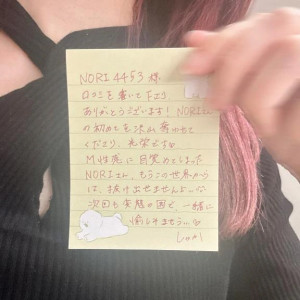 NORI4453 様
口コミを書いて下さり
ありがとうございます! NORIさん
の初めてを沢山奪わせて
くださり、光栄です
M性感に目覚めてしまった
NORIさん、もうこの世界から
は、抜け出せませんよ
次回も変態の国で、一緒に
愉しみましょう